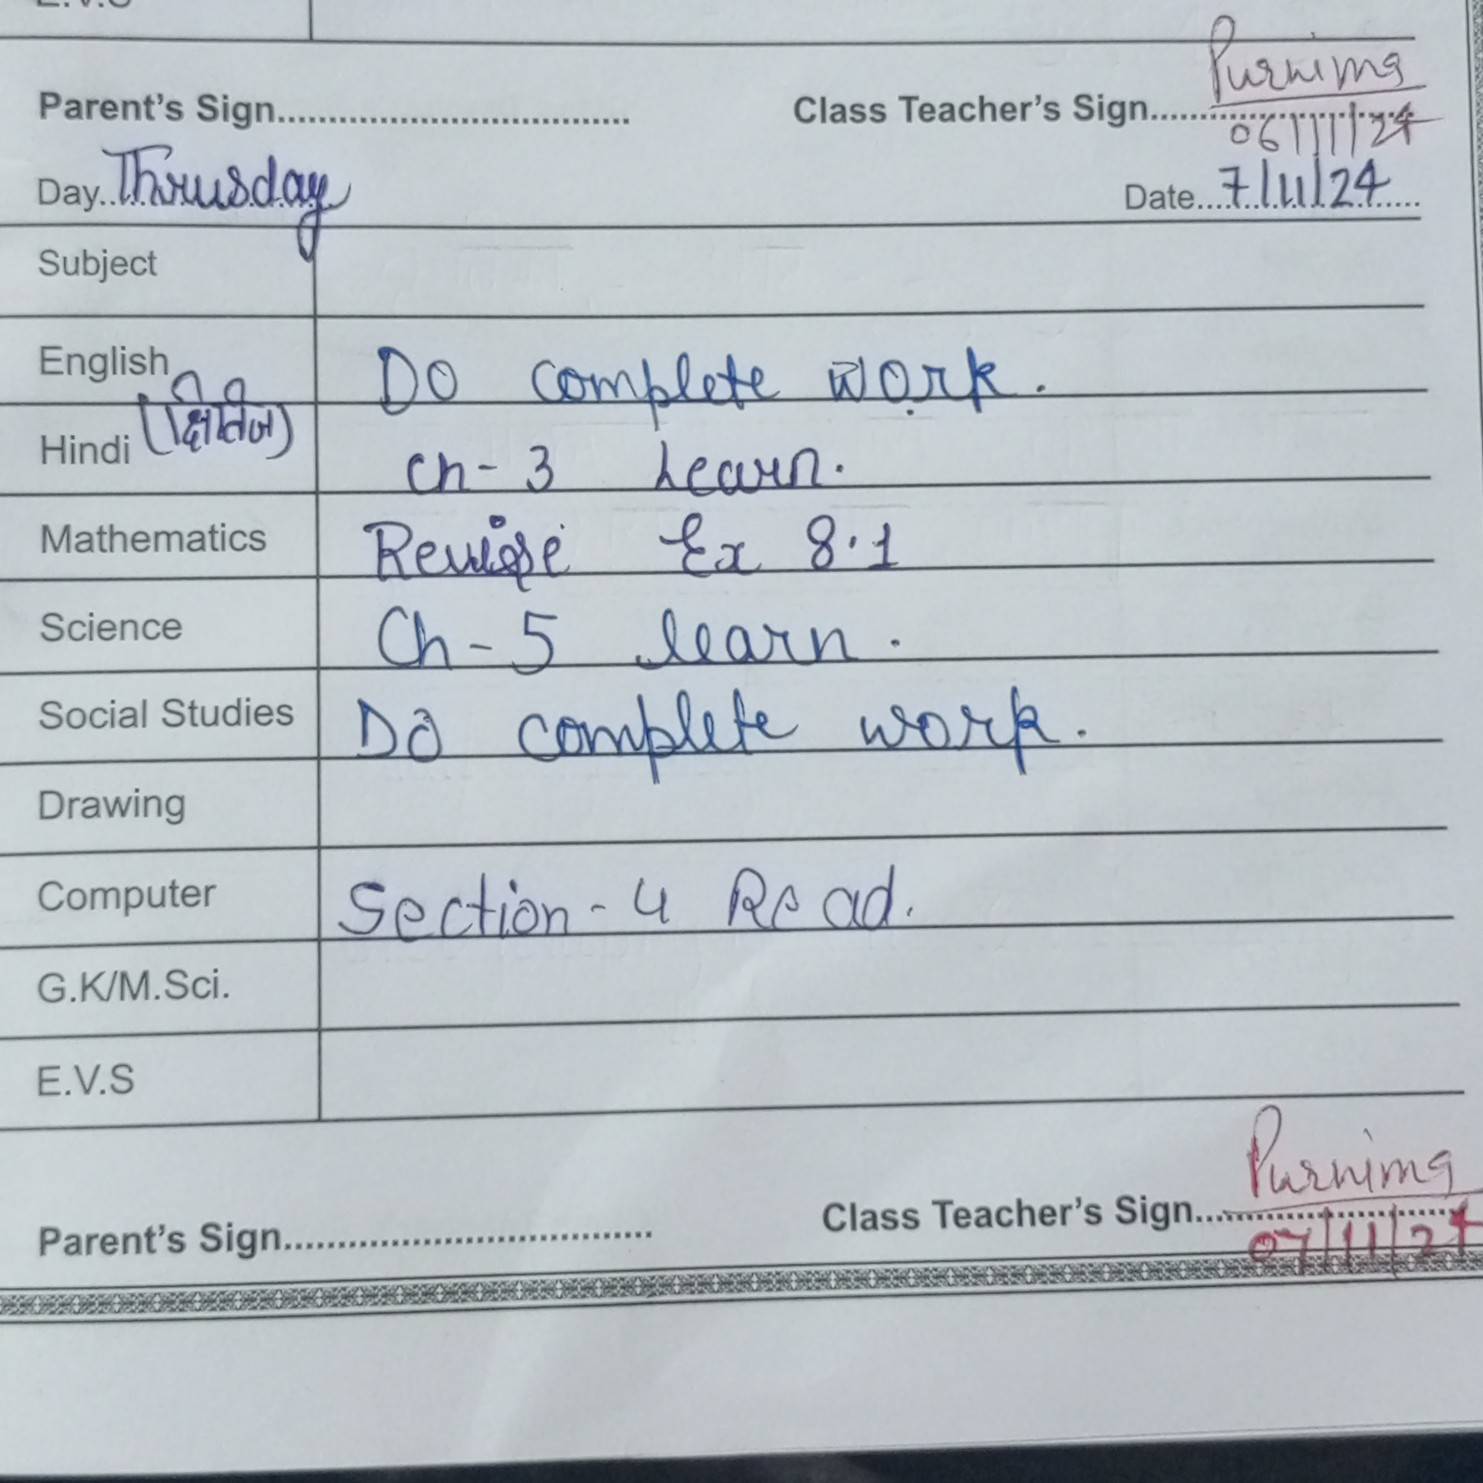 Purnima
Parent's Sign................................. Class Teacher's Sign...............................
06/11/24
Day..Thrusday Date....7/11/24....
Subject
English Do complete work.
Hindi (क्षितिज) Ch-3 Learn.
Mathematics Revise Ex 8.1
Science Ch-5 learn.
Social Studies Do complete work.
Drawing
Computer Section-4 Read.
G.K/M.Sci.
E.V.S
Purnima
Parent's Sign................................. Class Teacher's Sign...............................
07/11/24